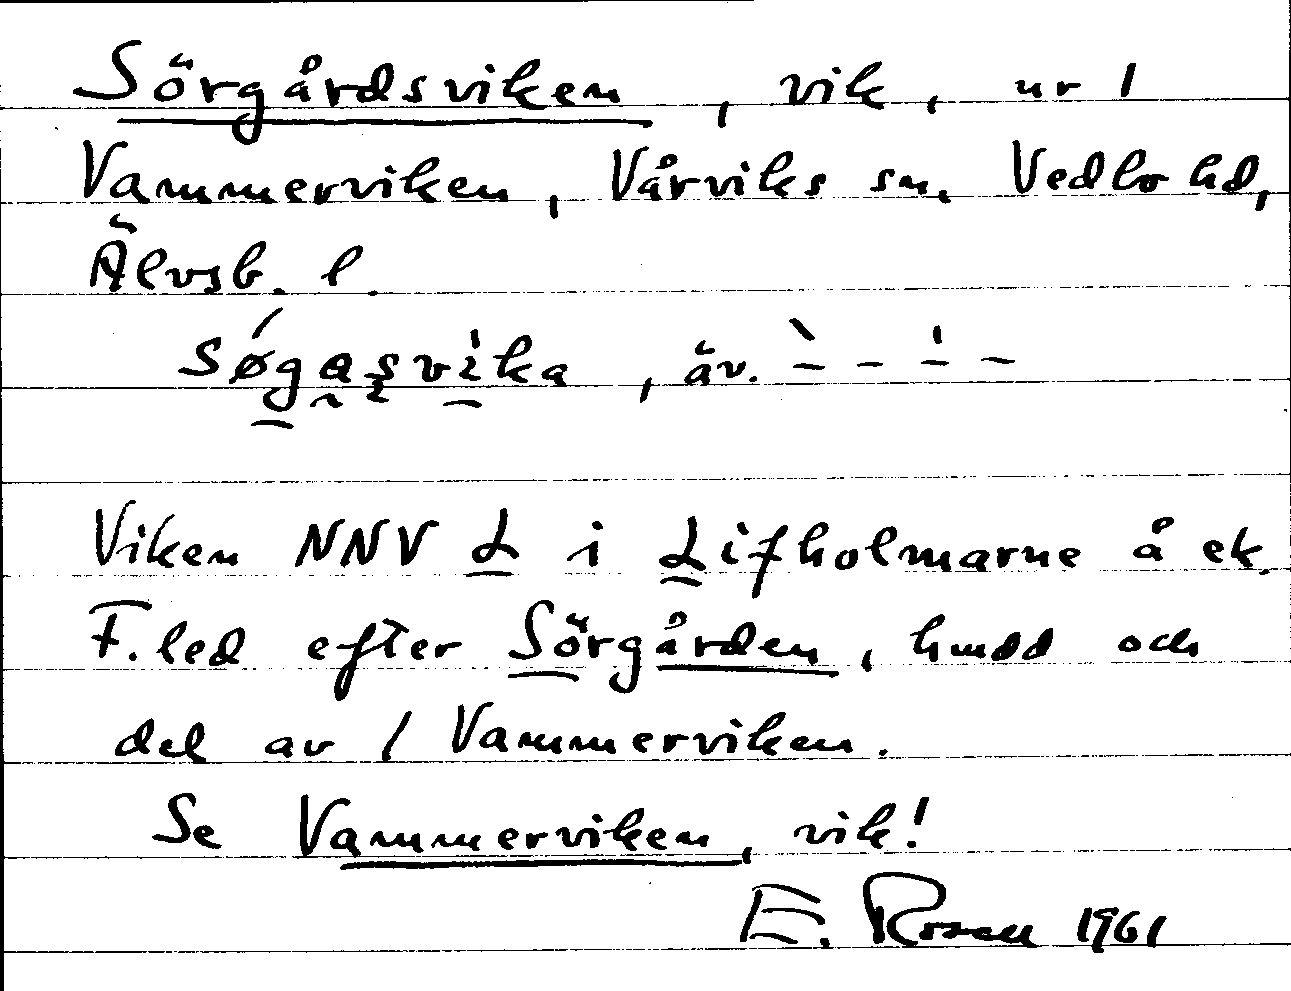 Sörgårdsviken, vik, nr 1
Vammerviken, Vårviks sn, Vedbo hd,
Älvsb. l.
søgasvika, äv. ̀– – ̍– –
Viken NNV L i Lifholmarne å ek.
F.led efter Sörgården, hmdd och
del av / Vammerviken.
Se Vammerviken, vik!
E. Rosen 1961